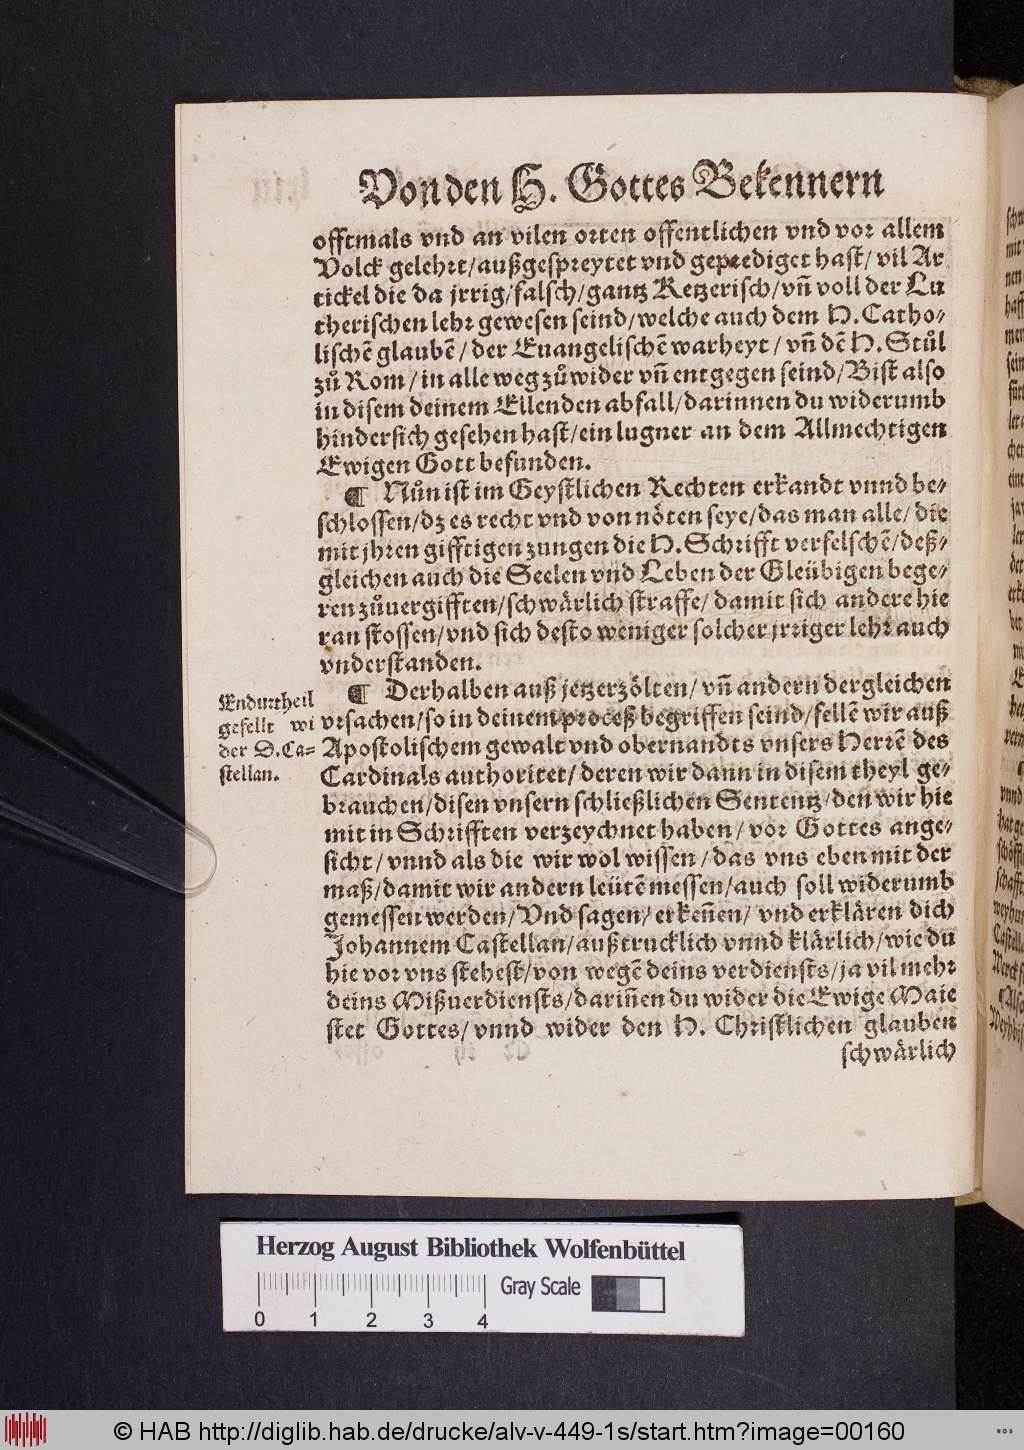 Von den H. Gottes Bekennern
offtmals vnd an vilen orten offentlichen vnd vor allem
Volck gelehrt/außgespreytet vnd geprediget hast/ vil Ar
tickel die da jrrig/falsch/gantz Ketzerisch/vñ voll der Lu
therischen lehr gewesen seind/welche auch dem H. Catho-
lischē glaubē/ der Euangelischē warheyt/ vñ dē H. Stůl
zů Rom/ in alle weg zůwider vñ entgegen seind/Bist also
in disem deinem Ellenden abfall/darinnen du widerumb
hindersich gesehen hast/ein lugner an dem Allmechtigen
Ewigen Gott befunden.
¶ Nůn ist im Geystlichen Rechten erkandt vnnd be-
schlossen/dz es recht vnd von nöten seye/das man alle/ die
mit jhren gifftigen zungen die H. Schrifft verfelschē/deß-
gleichen auch die Seelen vnd Leben der Gleübigen bege-
ren zůuergifften/schwärlich straffe/ damit sich andere hie
ran stossen/vnd sich desto weniger solcher jrriger lehr auch
vnderstanden.
Endurtheil
gefellt wi
der D. Ca-
stellan.
¶ Derhalben auß jetzerzölten/ vñ andern dergleichen
vrsachen/so in deinem proceß begriffen seind/fellē wir auß
Apostolischem gewalt vnd obernandts vnsers Herrē des
Cardinals authoritet/ deren wir dann in disem theyl ge-
brauchen/disen vnsern schließlichen Sententz/den wir hie
mit in Schrifften verzeychnet haben/ vor Gottes ange-
sicht/ vnnd als die wir wol wissen/das vns eben mit der
maß/damit wir andern leütē messen/auch soll widerumb
gemessen werden/Vnd sagen/ erkeñen/ vnd erklären dich
Johannem Castellan/außtrucklich vnnd klärlich/wie du
hie vor vns stehest/von wegē deins verdiensts/ja vil mehr
deins Mißuerdiensts/dariñen du wider die Ewige Maie
stet Gottes/ vnnd wider den H. Christlichen glauben
schwärlich
Herzog August Bibliothek Wolfenbüttel
0 1 2 3 4
Gray Scale
© HAB http://diglib.hab.de/drucke/alv-v-449-1s/start.htm?image=00160